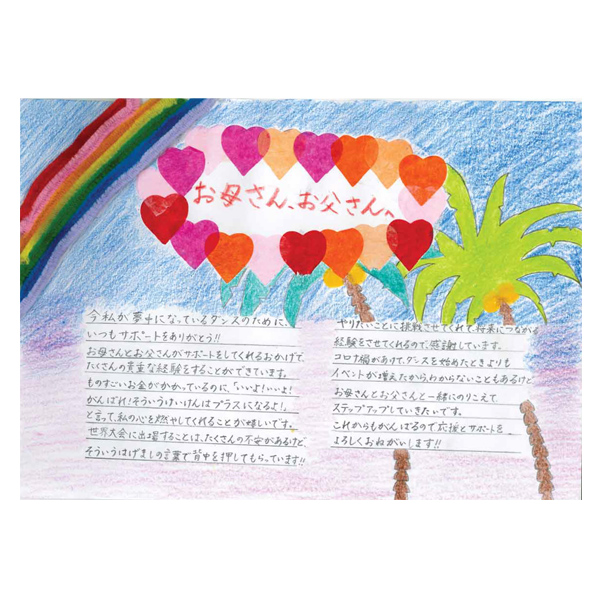 お母さん、お父さんへ
今私が夢中になっているダンスのために、
いつもサポートをありがとう!!
お母さんとお父さんがサポートをしてくれるおかげで、
たくさんの貴重な経験をすることができています。
ものすごいお金がかかっているのに、「いいよ!いいよ!
がんばれ!そういうけいけんはプラスになるよ!」
と言って、私の心を燃やしてくれることが嬉しいです。
世界大会に出場することは、たくさんの不安があるけど、
そういうはげましの言葉で背中を押してもらっています!!
やりたいことに挑戦させてくれて、将来につながる
経験をさせてくれるので、感謝しています。
コロナ禍があけて、ダンスを始めたときよりも
イベントが増えたから、わからないこともあるけど
お母さんとお父さんと一緒にのりこえて、
ステップアップしていきたいです。
これからもがんばるので応援とサポートを
よろしくおねがいします!!